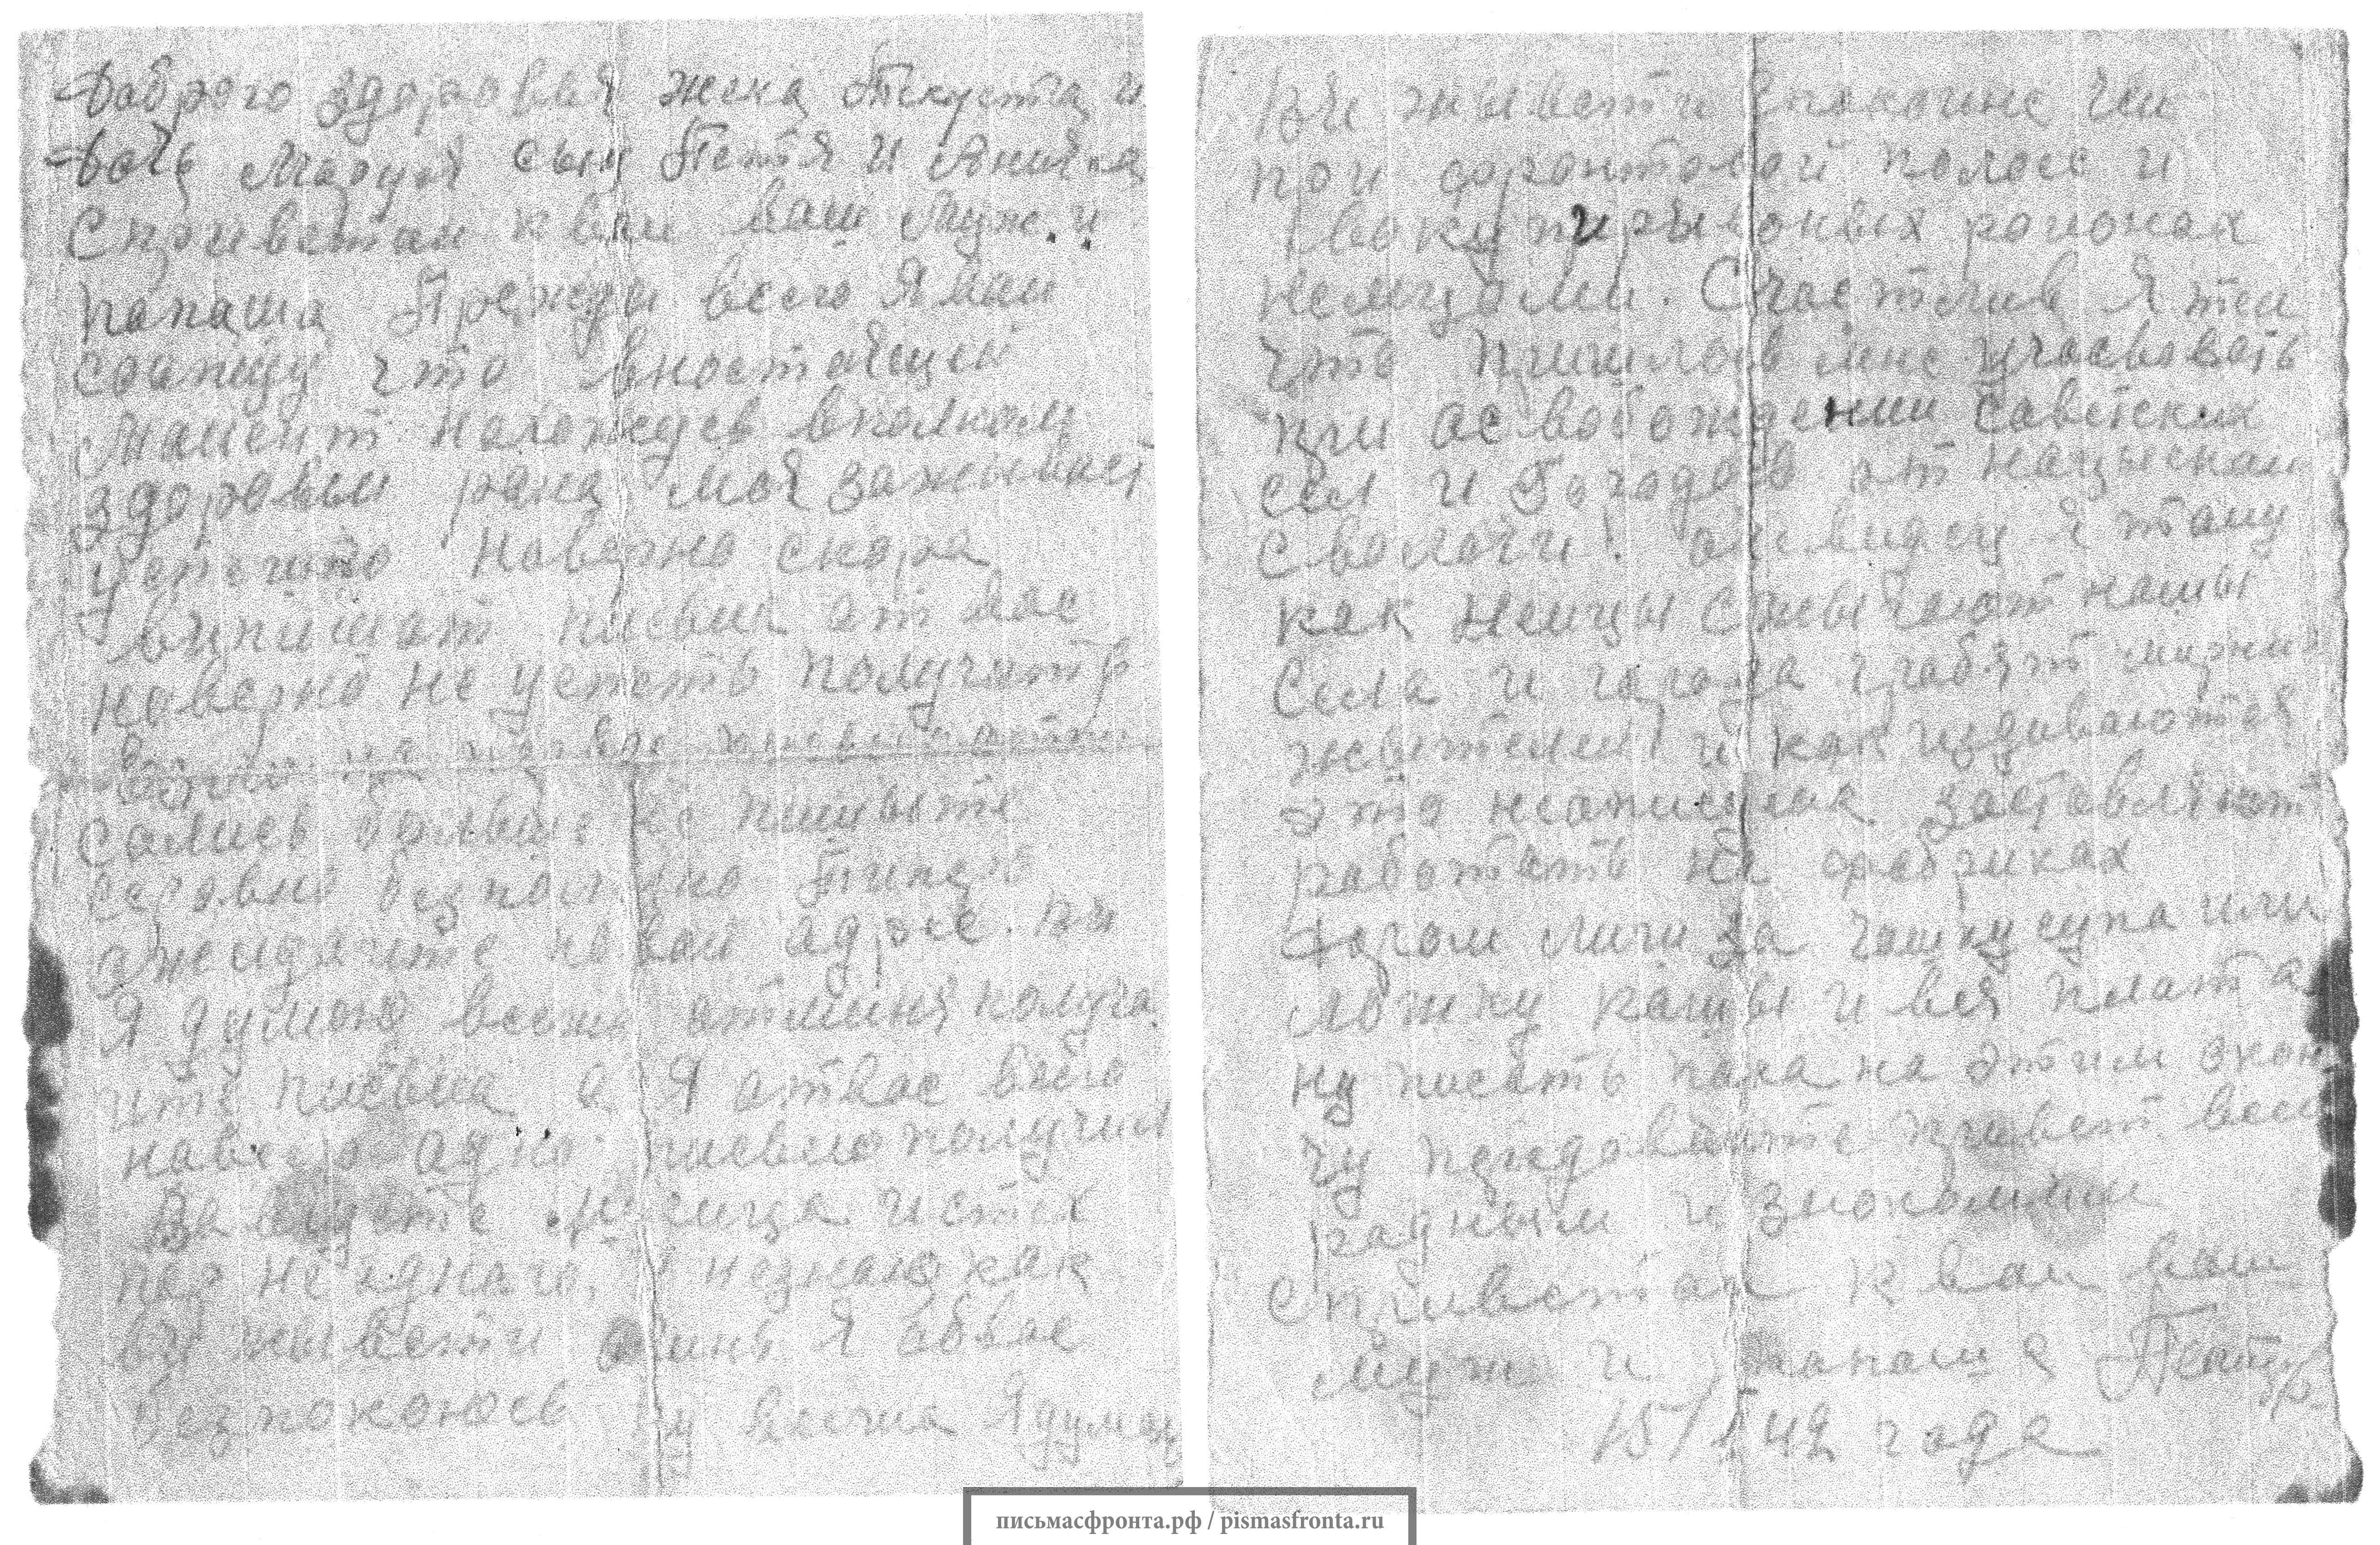 Доброго здоровья жена Пекуста и
Дочь Маруся сын Петя и
Сприветам к вам ваш муж. и
папаша Прежди всего Я вам
соапщу что внастаящий
Мамент нахожусь вполним
здоровьи рана моя заживает
хорошо Наверно скора
випишат писем от вас
наверно не успеть получать
самись больше не пишыте
всеравно безполезно Типерь
ожидайте новай адрес. ни
Я думаю всеже отминя получа
ите письма а Я отвас всего
навсего адно письмо получил
За месица
пор не аднаго. незнаю как
ви живети очинь Я обвас
безпокоюсь ну всетки Я думаю
ви живети спакойне чем
при фронтовой полосе и
вокупированых раионах
немцами. Счастлив Я тем
что пришлось мне учасвовать
при асвобождении Саветских
сел и городов от нацыскай
сволачи! Я таму
как Немцы сжыгают нашы
Села и города грабят мирных
жытелей и как издиваются
это неописуемо заставляют
работать на фабриках
Дорам лиш за чашку супа или
ложку кашы и вся плата
ну писать пака на этим окон
чу передовайте привет всем
радным и знокомым
с приветам к вам ваш
муж и папаша Петр
15/1 42 года
письмасфронта.рф / pismasfronta.ru